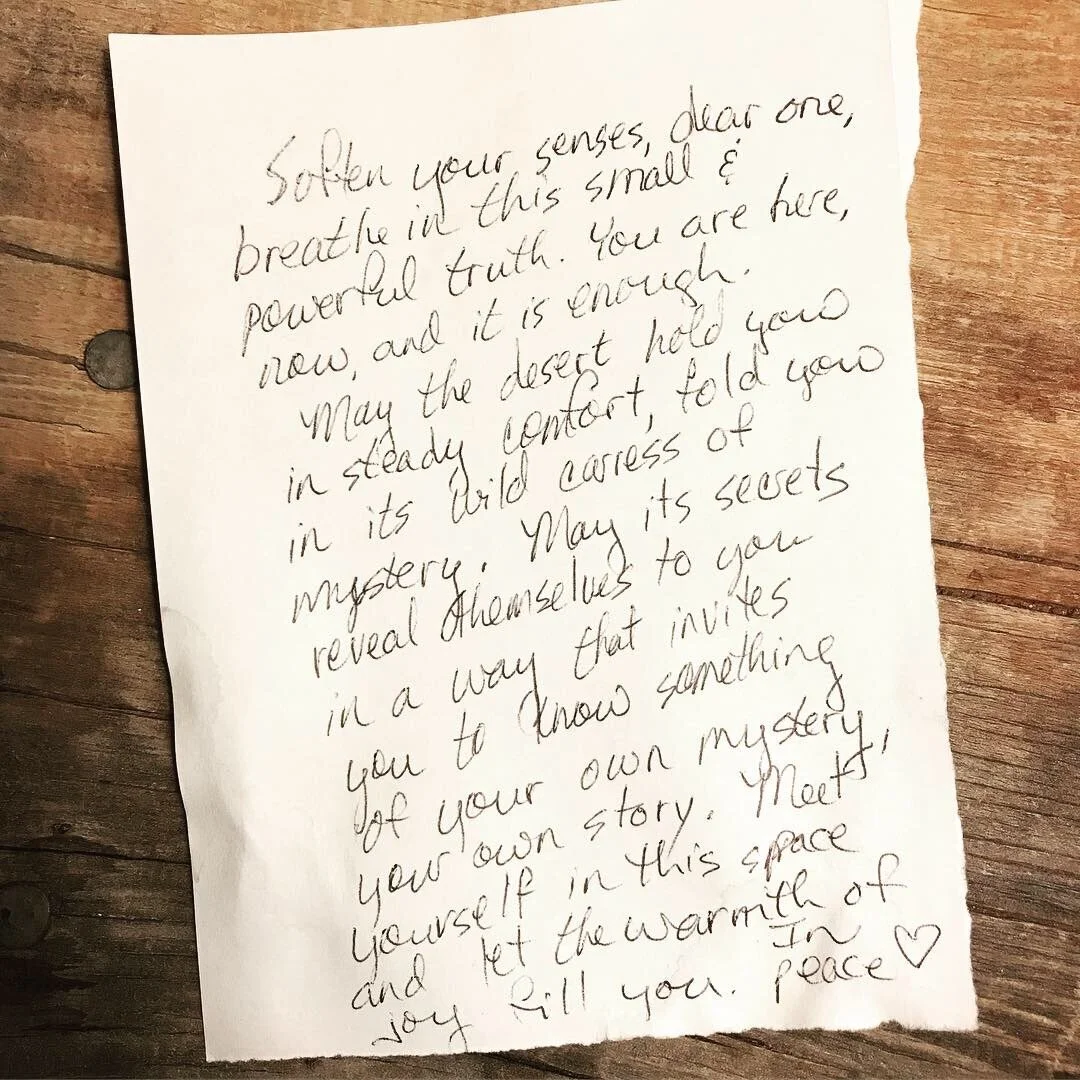 Soften your senses, dear one,
breathe in this small &
powerful truth. You are here,
now, and it is enough.
May the desert hold you
in steady comfort, fold you
in its wild carress of
mystery. May its secrets
reveal themselves to you
in a way that invites
you to know something
of your own mystery,
your own story. Meet
yourself in this space
and let the warmth of
joy fill you. In
peace ♡